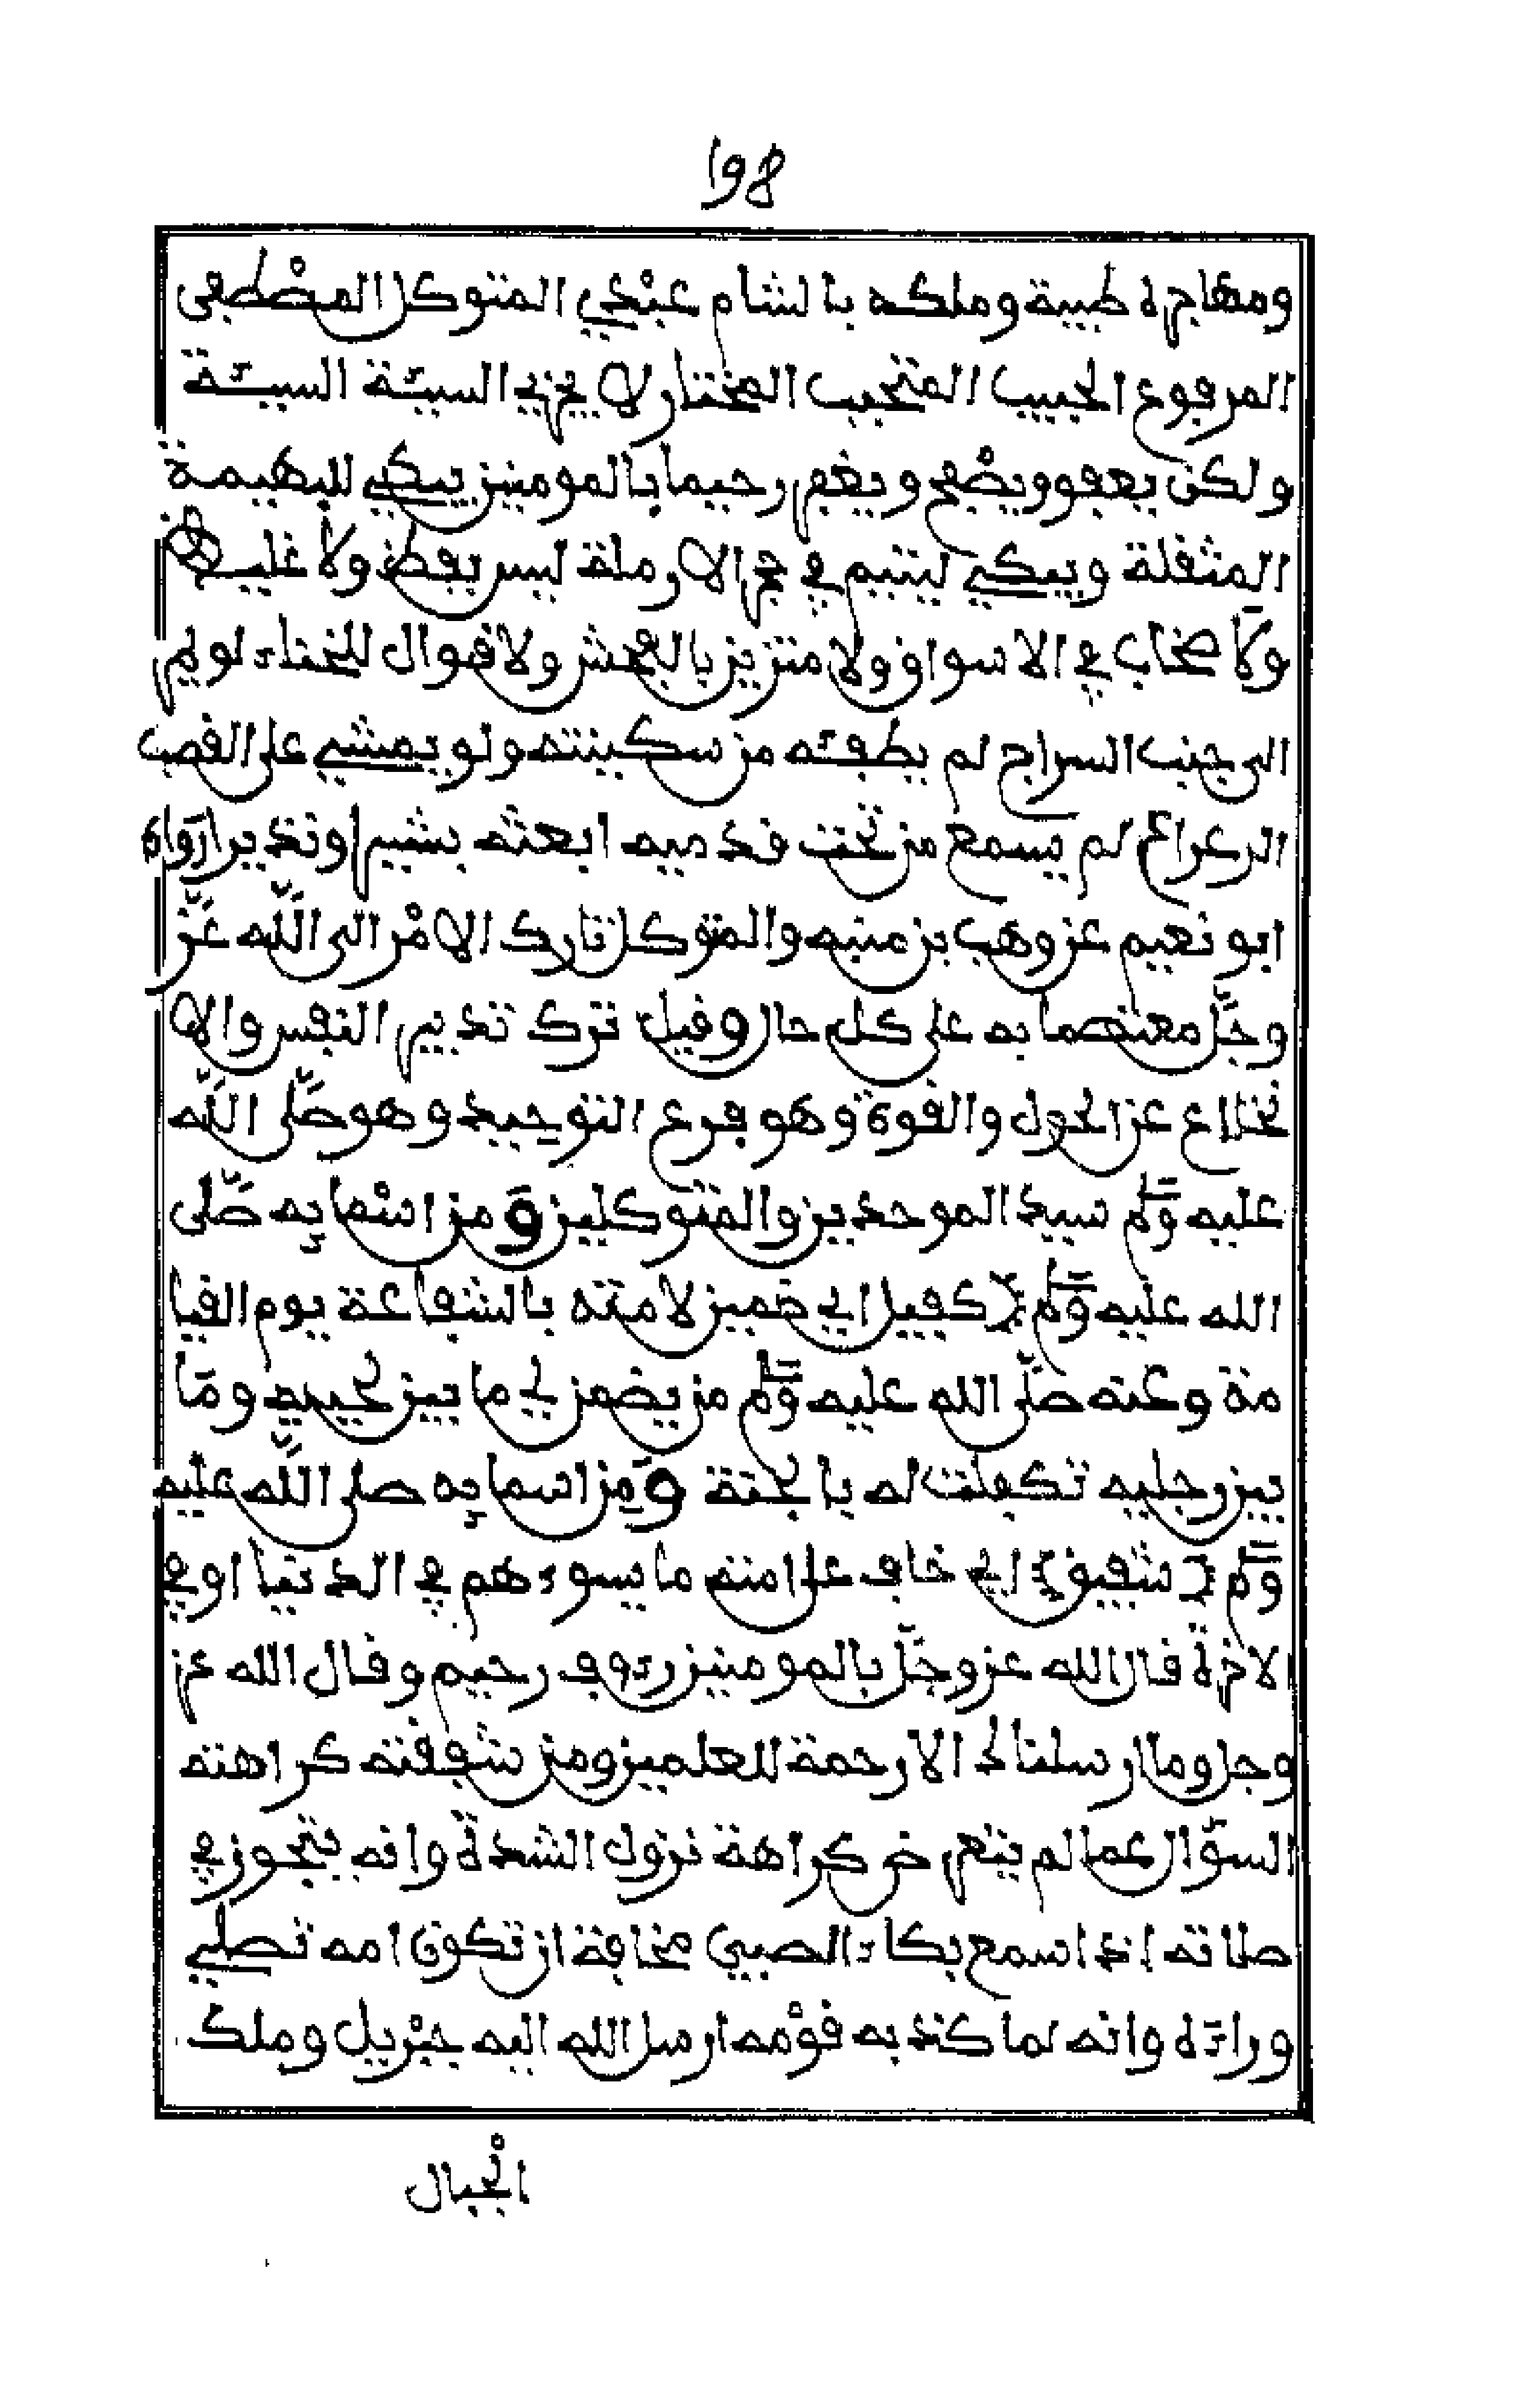 198
ومهاجره طيبة وملكه بالشام عبدي المتوكل المصطفى
المرفوع الحبيب المتحبب المختار لا يجزي السيئة السيئة
ولكن يعفو ويصفح ويغفر رحيما بالمومنين يبكي للبهيمة
المثقلة ويبكي ليتيم في حجر الارملة ليس بفظ ولا غليظ
ولا صخاب في الاسواق ولا متزين بالفحش ولا قوال للخناء لو يمر
الى جنب السراج لم يطفئه من سكينته ولو يمشي على القصب
الرعراع لم يسمع من تحت قدميه ابعثه بشيرا ونذيرا رواه
ابو نعيم عن وهب بن منبه والمتوكل تارك الامر الى الله عز
وجل معتصما به على كل حال وقيل ترك تدبير النفس والا
نخلاع عن الحول والقوة وهو فرع التوحيد وهو صلى الله
عليه وسلم سيد الموحدين والمتوكلين ومن اسمايه صلى
الله عليه وسلم كفيل اي ضمين لامته بالشفاعة يوم القيا
مة وعنه صلى الله عليه وسلم من يضمن لي ما بين لحييه وما
بين رجليه تكفلت له بالجنة ومن اسمايه صلى الله عليه
وسلم شفيق اي خاف على امته ما يسوءهم في الدنيا او في
الاخرة قال الله عز وجل بالمومنين رءوف رحيم وقال الله عز
وجل وما ارسلناك الا رحمة للعلمين ومن شفقته كراهته
السؤال عما لم يتعرض كراهة نزول الشدة وانه يتجوز في
صلاته اذا سمع بكاء الصبي مخافة ان تكون امه تصلي
وراءه وانه لما كذبه قومه ارسل الله اليه جبريل وملك
الجبال